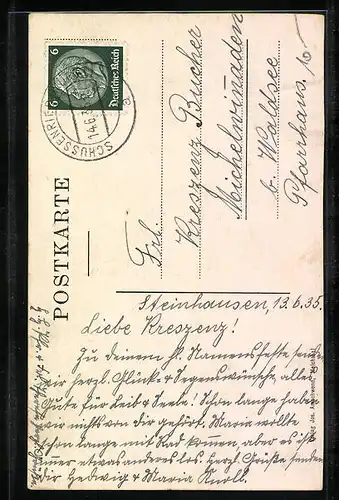 6 Deutsches Reich 6
SCHUSSENRIED
14.6.3
a
POSTKARTE
Frl.
Kreszenz Bucher
Michelwinnaden
b. Waldsee
Pfarrhaus.
Steinhausen, 13.6.35.
Liebe Kreszenz!
Zu deinem hl. Namensfeste senden
wir herzl. Glück- & Segenswünsche, alles
Gute für Leib & Seele! Schon lange haben
wir nichts von dir gehört. Maria wollte
schon lange mit Rad kommen, aber es ist
immer etwas anderes los. Herzl. Grüße senden
Dir Hedwig & Maria Knoll.